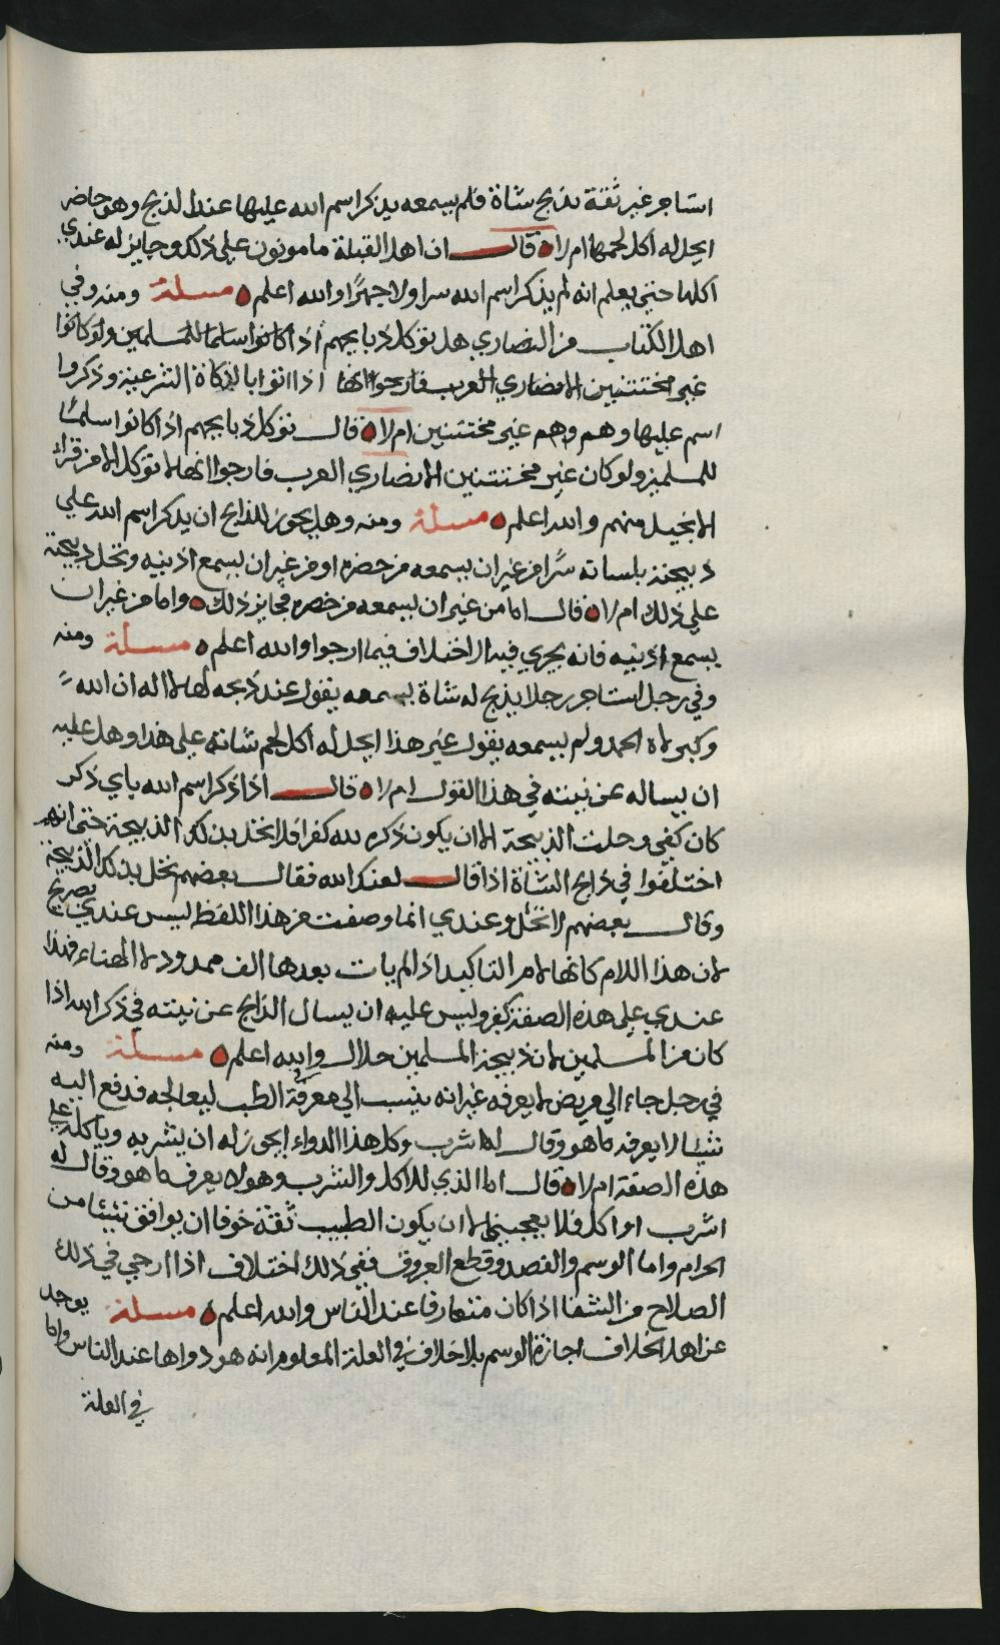 استاجر غير ثقة يذبح شاة فلم يسمعه يذكر اسم الله عليها عند الذبح وهو حاضر
ايحل له اكل لحمها ام لا قال ان اهل القبلة مامونون على ذلك وجايز له عندي
اكلها حتى يعلم انه لم يذكر اسم الله سرا ولا جهرًا والله اعلم مسئلة ومنه وفي
اهل الكتاب من النصاري هل توكل ذبايحهم اذا كانوا سلما للمسلمين ولو كانوا
غير مختتنين الا نصاري العرب فارجوا انها اذا اتوا بالذكاة الشرعية وذكروا
اسم عليها وهم وهم غير مختتنين ام لا قال توكل ذبايحهم اذا كانوا سلما
للمسلمين ولو كان غير مختتنين الا نصاري العرب فارجوا انها لا توكل الا من قرأ
الانجيل منهم والله اعلم مسئلة ومنه وهل يجوز للذابح ان يذكر اسم الله علي
ذبيحته بلسانه سرًا من غير ان يسمعه من حضره او من غير ان يسمع اذنيه وتحل ذبيحته
علي ذلك ام لا قال اما من غير ان يسمعه من حضره فجايز ذلك واما من غير ان
يسمع اذنيه فانه يجري فيه الاختلاف فيما ارجوا والله اعلم مسئلة ومنه
وفي رجل استاجر رجلا يذبح له شاة يسمعه يقول عند ذبحه لها لا اله ان الله
وكبر لاه احمد ولم يسمعه يقول غير هذا ايحل له اكل لحم شاته علي هذا وهل عليه
ان يساله عن نيته في هذا القول ام لا قال اذا ذكر اسم الله باي ذكر
كان كفي وحلت الذبيحة الا ان يكون ذكره لله كفرا فلا تحل بذلك الذبيحة حتى انهم
اختلفوا في ذابح الشاة اذا قال لعنك الله فقال بعضهم تحل بذلك الذبيحة
وقال بعضهم لا تحل وعندي انما وصفت من هذا اللفظ ليس عندي بصريح
لان هذا اللام كانها لام التاكيد اذ لم يات بعدها الف ممدود لا الهناء فهذا
عندي علي هذه الصفة كفر وليس عليه ان يسال الذابح عن نيته في ذكر الله اذا
كان من المسلمين لان ذبيحة المسلمين حلال والله اعلم مسئلة ومنه
في رجل جاء الي مريض لا يعرفه غير انه ينسب الي معرفة الطب ليعالجه فدفع اليه
شيئا لا يعرفه ما هو وقال له اشرب وكل هذا الدواء ايجوز له ان يشربه وياكله علي
هذه الصفة ام لا قال اما الذي للاكل والشرب وهو لا يعرف ما هو وقال له
اشرب او اكل فلا يعجبني الا ان يكون الطبيب ثقة خوفا ان يوافق شيئا من
الحرام واما الوسم والفصد وقطع العروق ففي ذلك اختلاف اذا ارجي في ذلك
الصلاح من الشفا اذا كان متعارفا عند الناس والله اعلم مسئلة يوجد
عن اهل الخلاف اجازة الوسم بلا خلاف في العلة المعلوم انه هو دواها عند الناس واما
في العلة